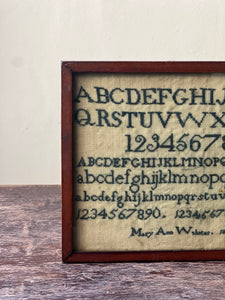 ABCDEFGHIJ
QRSTUVWX
12345678
ABCDEFGHIJKLMNOPQ
abcdefghijklmnopq
abcdefghijklmnopqrstuv
1234567890. 1234567
Mary Ann